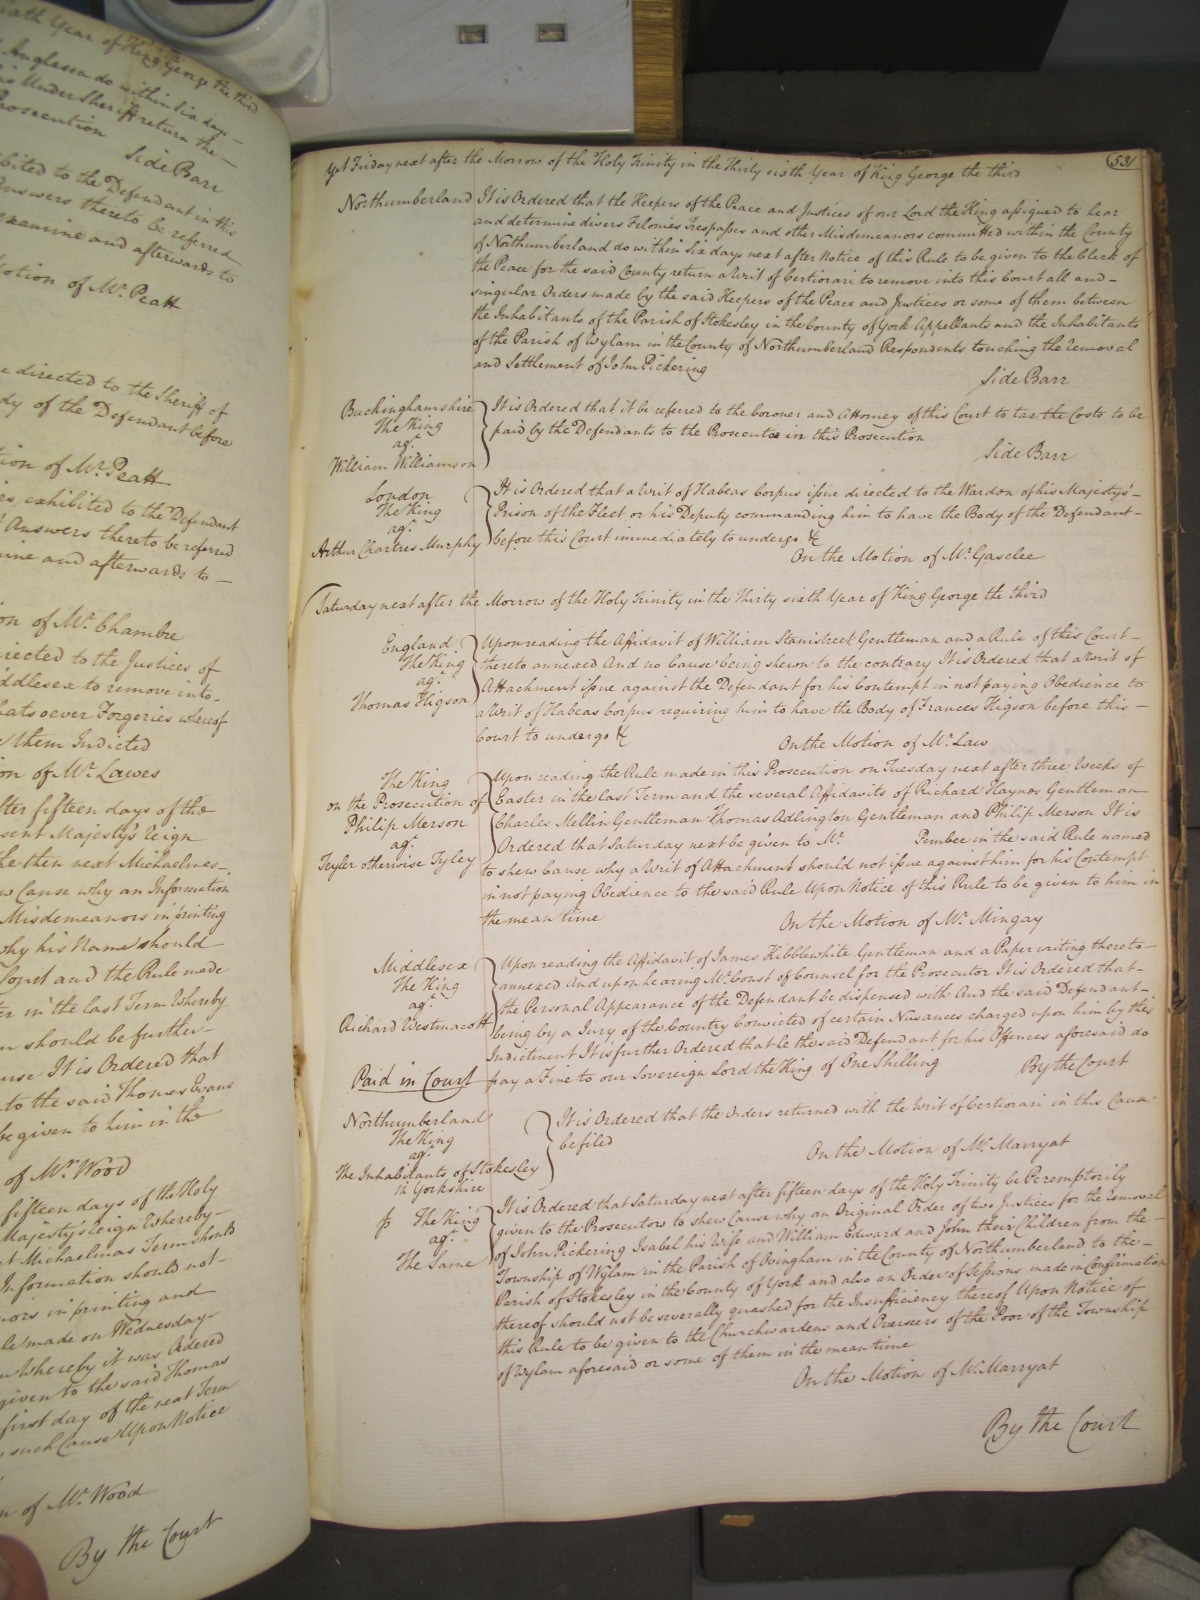 ixth Year of King George the third
Anglesea do within Six days
is Under Sheriff return the
Prosecution
Side Barr
bited to the Defendant in this
Answers thereto be referred
examine and afterwards to
Motion of Mr. Peatt
e directed to the Sheriff of
dy of the Defendant before
tion of Mr. Peatt
es exhibited to the Defendant
Answers thereto be referred
mine and afterwards to
on of Mr. Chambre
directed to the Justices of
iddlesex to remove into
hatsoever Forgeries whereof
them Indicted
on of Mr. Lawes
fter fifteen days of the
sent Majesty's Reign
the then next Michaelmas
w Cause why an Information
Misdemeanors in printing
why his Name should
Court and the Rule made
er in the last Term Whereby
should be further
use It is Ordered that
to the said Thomas Evans
be given to him in the
of Mr. Wood
fifteen days of the Holy
Majesty's Reign Whereby
t Michaelmas Term should
Information should not
nors in printing and
le made on Wednesday
Whereby it was Ordered
given to the said Thomas
first day of the next Term
such Cause Upon Notice
n of Mr. Wood
By the Court
53
Yet Friday next after the Morrow of the Holy Trinity in the Thirty sixth Year of King George the third
Northumberland It is Ordered that the Keepers of the Peace and Justices of our Lord the King assigned to hear
and determine divers Felonies Trespasses and other Misdemeanors committed within the County
of Northumberland do within Six days next after Notice of this Rule to be given to the Clerk of
the Peace for the said County return a Writ of Certiorari to remove into this Court all and
singular Orders made by the said Keepers of the Peace and Justices or some of them between
the Inhabitants of the Parish of Stokesley in the County of York Appellants and the Inhabitants
of the Parish of Wylam in the County of Northumberland Respondents touching the removal
and Settlement of John Pickering
Side Barr
Buckinghamshire
The King
agt.
William Williamson
It is Ordered that it be referred to the Coroner and Attorney of this Court to tax the Costs to be
paid by the Defendants to the Prosecutor in this Prosecution
Side Barr
London
The King
agt.
Arthur Chartres Murphy
It is Ordered that a Writ of Habeas Corpus issue directed to the Warden of his Majesty's
Prison of the Fleet or his Deputy commanding him to have the Body of the Defendant
before this Court immediately to undergo &c
On the Motion of Mr. Gaselee
Saturday next after the Morrow of the Holy Trinity in the Thirty sixth Year of King George the third
England
The King
agt.
Thomas Higson
Upon reading the Affidavit of William Stanistreet Gentleman and a Rule of this Court
thereto annexed And no Cause being shewn to the contrary It is Ordered that a Writ of
Attachment issue against the Defendant for his Contempt in not paying Obedience to
a Writ of Habeas Corpus requiring him to have the Body of Frances Higson before this
Court to undergo &c
On the Motion of Mr. Law
The King
on the Prosecution of
Philip Merson
agt.
Teyler otherwise Tyley
Upon reading the Rule made in this Prosecution on Tuesday next after three Weeks of
Easter in the last Term and the several Affidavits of Richard Haynes Gentleman
Charles Mellin Gentleman Thomas Adlington Gentleman and Philip Merson It is
Ordered that Saturday next be given to Mr. Pember in the said Rule named
to shew Cause why a Writ of Attachment should not issue against him for his Contempt
in not paying Obedience to the said Rule Upon Notice of this Rule to be given to him in
the mean time
On the Motion of Mr. Mingay
Middlesex
The King
agt.
Richard Westmacott
Upon reading the Affidavit of James Kibblewhite Gentleman and a Paper writing thereto
annexed And upon hearing Mr. Const of Counsel for the Prosecutor It is Ordered that
the Personal Appearance of the Defendant be dispensed with And the said Defendant
being by a Jury of the Country Convicted of certain Nusances charged upon him by this
Indictment It is further Ordered that he the said Defendant for his Offences aforesaid do
Paid in Court pay a Fine to our Sovereign Lord the King of One Shilling
By the Court
Northumberland
The King
agt.
The Inhabitants of Stokesley
in Yorkshire
It is Ordered that the Orders returned with the Writ of Certiorari in this Cause
be filed
On the Motion of Mr. Marryat
The King
agt.
The Same
It is Ordered that Saturday next after fifteen days of the Holy Trinity be Peremptorily
given to the Prosecutors to shew Cause why an Original Order of two Justices for the removal
of John Pickering Isabel his Wife and William Edward and John their Children from the
Township of Wylam in the Parish of Ovingham in the County of Northumberland to the
Parish of Stokesley in the County of York and also an Order of Sessions made in Confirmation
thereof should not be severally quashed for the Insufficiency thereof Upon Notice of
this Rule to be given to the Churchwardens and Overseers of the Poor of the Township
of Wylam aforesaid or some of them in the mean time
On the Motion of Mr. Marryat
By the Court